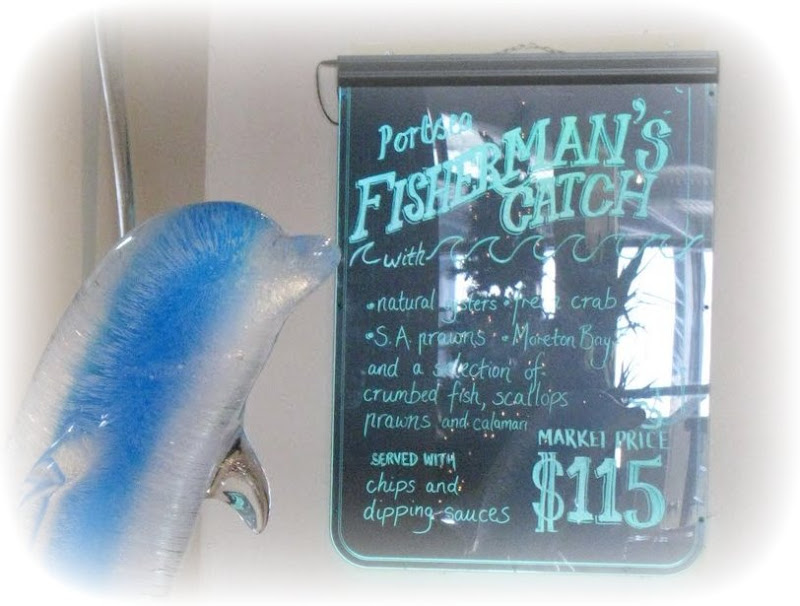 Portsea
FISHERMAN'S
CATCH
with
•natural oysters •fresh crab
•S.A prawns •Moreton Bay
and a selection of
crumbed fish, scallops
prawns and calamari
SERVED WITH
chips and
dipping sauces
MARKET PRICE
$115